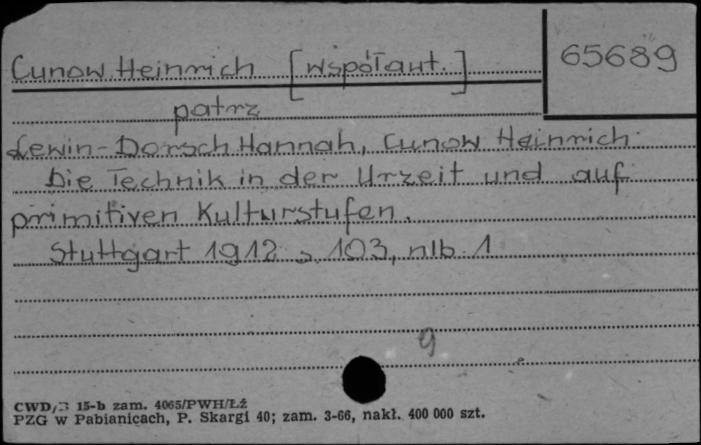 Cunow Heinrich [współaut.] 65689
patrz
Lewin-Dorsch Hannah, Cunow Heinrich
Die Technik in der Urzeit und auf
primitiven Kulturstufen.
Stuttgart 1912 s. 103, nlb. 1
9
CWD/3 15-b zam. 4065/PWH/Łź
PZG w Pabianicach, P. Skargi 40; zam. 3-66, nakł. 400 000 szt.